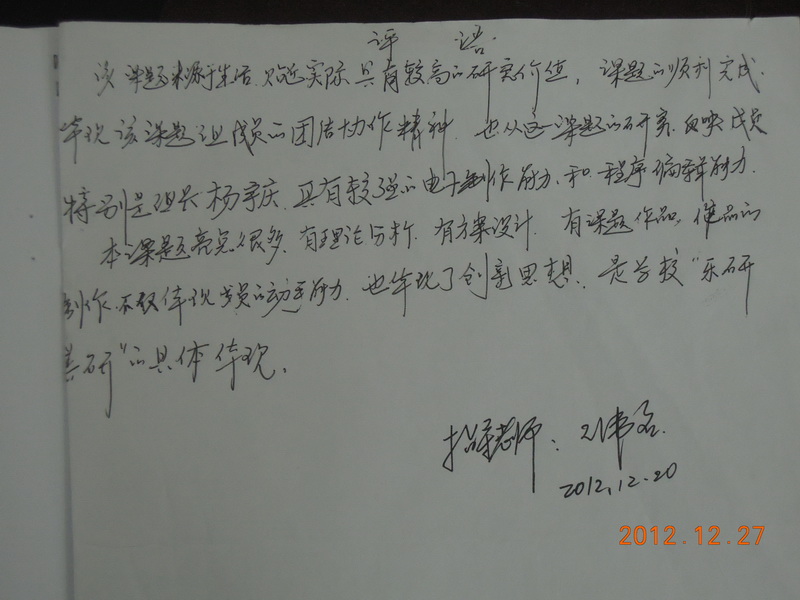 评 语
该课题来源于生活,贴近实际具有较高的研究价值,课题的顺利完成.
体现该课题组成员的团结协作精神.也从这课题的研究.反映成员
特别是组长杨宇庆.具有较强的电子制作能力.和程序编辑能力.
本课题亮点很多.有理论分析.有方案设计.有课题作品,作品的
制作.不仅体现成员的动手能力.也体现了创新思想.是学校“乐研
善研”的具体体现.
指导老师:刘伟
2012.12.20
2012.12.27